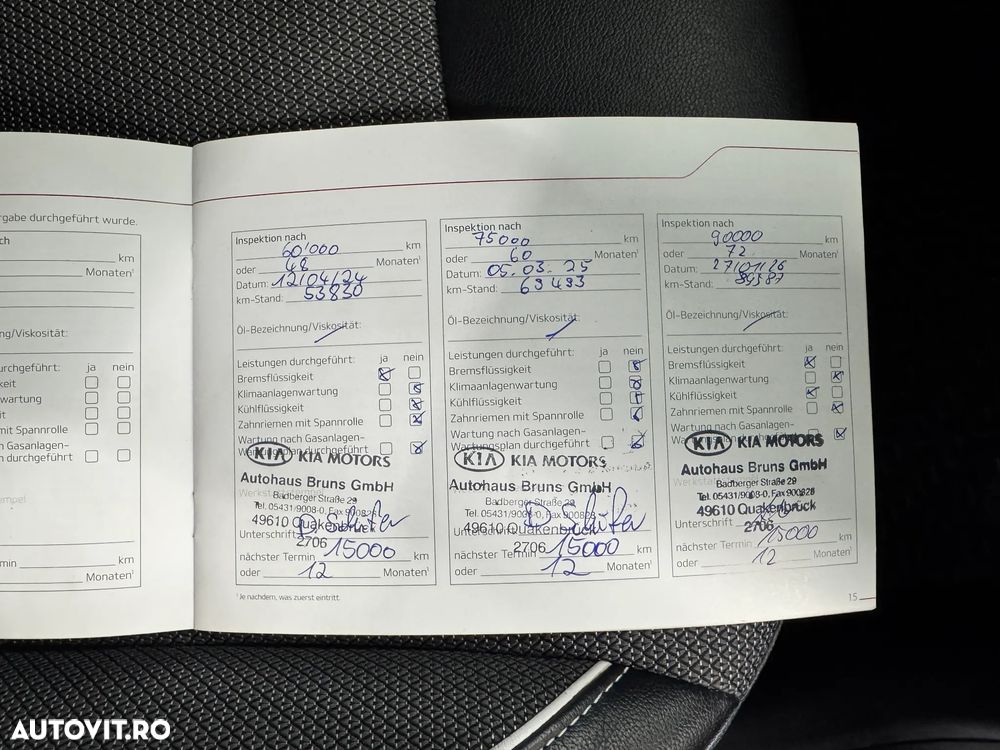 rgabe durchgeführt wurde.
ch
km
Monaten¹
ŝkosität:
urchgeführt: ja nein
keit
wartung
it
mit Spannrolle
n Gasanlagen-
n durchgeführt
empel
min km
Monaten¹
Inspektion nach
60'000 km
oder 48 Monaten¹
Datum: 12/04/24
km-Stand: 53830
Öl-Bezeichnung/Viskosität:
Leistungen durchgeführt: ja nein
Bremsflüssigkeit
Klimaanlagenwartung
Kühlflüssigkeit
Zahnriemen mit Spannrolle
Wartung nach Gasanlagen-
Wartungsplan durchgeführt
KIA KIA MOTORS
Autohaus Bruns GmbH
Badberger Straße 29
Tel. 05431/9008-0, Fax 900828
49610 Quakenbrück
Unterschrift
2706
nächster Termin 15000 km
oder 12 Monaten¹
¹Je nachdem, was zuerst eintritt.
Inspektion nach
75000 km
oder 60 Monaten¹
Datum: 05.03.25
km-Stand: 69493
Öl-Bezeichnung/Viskosität:
Leistungen durchgeführt: ja nein
Bremsflüssigkeit
Klimaanlagenwartung
Kühlflüssigkeit
Zahnriemen mit Spannrolle
Wartung nach Gasanlagen-
Wartungsplan durchgeführt
KIA KIA MOTORS
Autohaus Bruns GmbH
Badberger Straße 29
Tel. 05431/9008-0, Fax 900828
49610 Quakenbrück
Unterschrift
2706
nächster Termin 15000 km
oder 12 Monaten¹
Inspektion nach
90000 km
oder 72 Monaten¹
Datum: 27/01/26
km-Stand: 89587
Öl-Bezeichnung/Viskosität:
Leistungen durchgeführt: ja nein
Bremsflüssigkeit
Klimaanlagenwartung
Kühlflüssigkeit
Zahnriemen mit Spannrolle
KIA KIA MOTORS
Autohaus Bruns GmbH
Badberger Straße 29
Tel. 05431/9008-0, Fax 900828
49610 Quakenbrück
Unterschrift
2706
nächster Termin 15000 km
oder 12 Monaten¹
15
AUTOVIT.RO